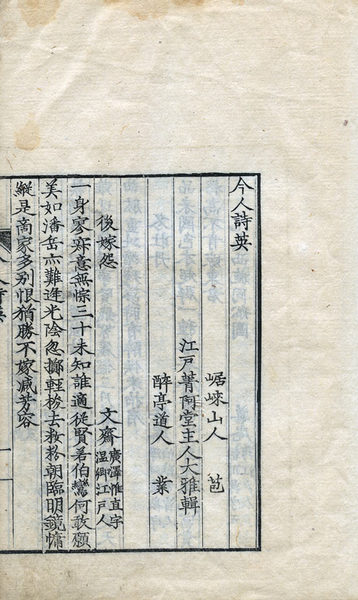 今人詩英
崌崍山人 芭
江戸菁阿堂主人大雅輯
醉亭道人 業
後嫁怨
文齋 廣澤惟直字
溫卿江戸人
一身寥寂意無悰三十未知誰適從賢若伯鸞何敢願
美如潘岳亦難逢光陰忽擲輕梭去妝粉朝臨明鏡慵
縱是商家多別恨猶勝不嫁減芳容